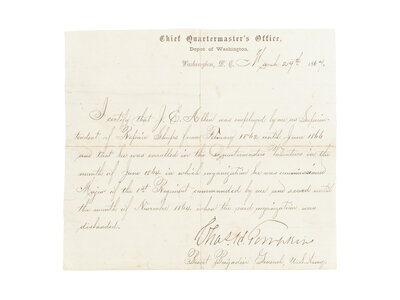 Chief Quartermaster's Office,
Depot of Washington,
Washington, D. C. March 29th 1867.
I certify that J. E. Allen was employed by me as Superin-
tendent of Repair Shops from February 1862 until June 1866
and that he was enrolled in the Quartermaster Volunteers in the
month of June 1864 in which organization he was commissioned
Major of the 1st Regiment commanded by me and served until
the month of November 1864 when the said organization was
disbanded.
Chas. H. Tompkins
Brevet Brigadier General, U.S. Army